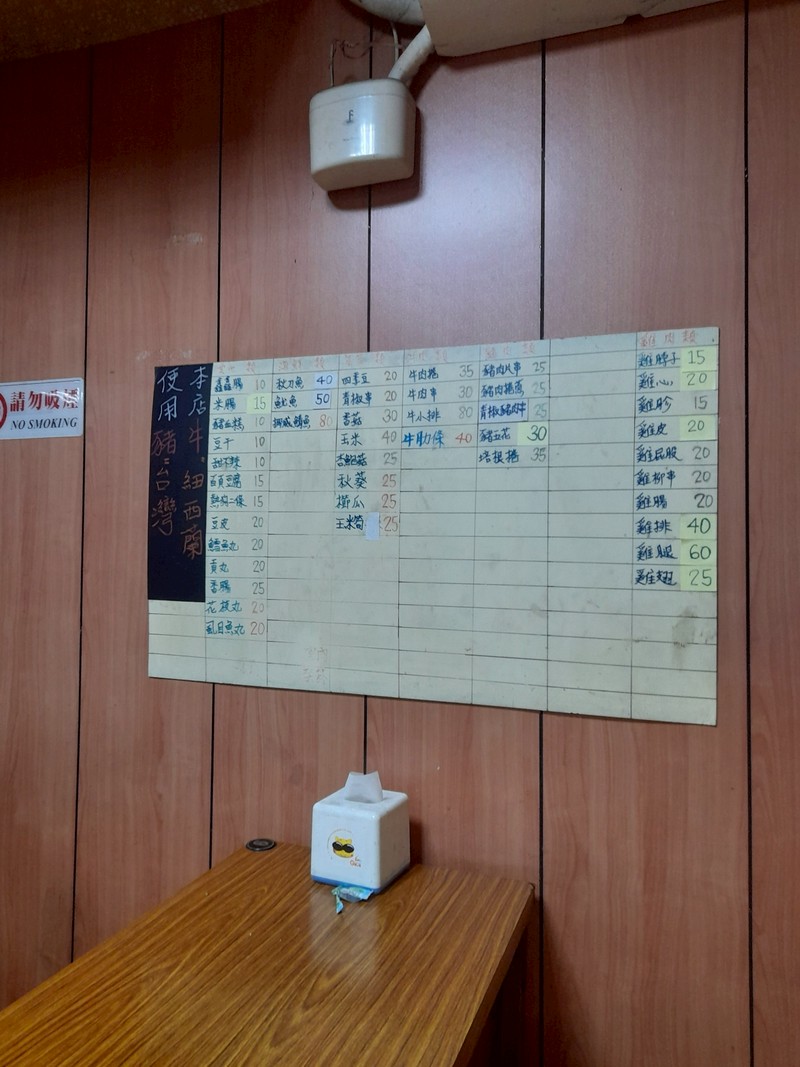 請勿吸煙
NO SMOKING
本店牛:紐西蘭
使用豬:台灣
鑫鑫腸 10
米腸 15
豬血糕 10
豆干 10
甜不辣 10
百頁豆腐 15
熱狗二條 15
豆皮 20
鱈魚丸 20
貢丸 20
香腸 25
花枝丸 20
虱目魚丸 20
秋刀魚 40
魷魚 50
挪威鯖魚 80
四季豆 20
青椒串 20
香菇 30
玉米 40
杏鮑菇 25
秋葵 25
櫛瓜 25
玉米筍 25
牛肉捲 35
牛肉串 30
牛小排 80
牛肋條 40
豬肉火串 25
豬肉捲蔥 25
青椒豬肉串 25
豬五花 30
培根捲 35
雞肉類
雞脖子 15
雞心 20
雞胗 15
雞皮 20
雞屁股 20
雞柳串 20
雞腸 20
雞排 40
雞腿 60
雞翅 25